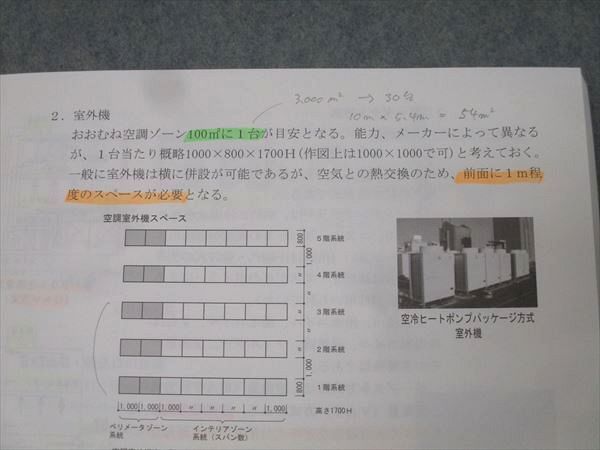 3,000㎡ → 30台
10m × 5.4m = 54㎡
2．室外機
おおむね空調ゾーン100㎡に1台が目安となる。能力、メーカーによって異なる
が、1台当たり概略1000×800×1700H（作図上は1000×1000で可）と考えておく。
一般に室外機は横に併設が可能であるが、空気との熱交換のため、前面に1m程
度のスペースが必要となる。
空調室外機スペース
800
5階系統
1,000
〃
4階系統
〃
〃
3階系統
〃
〃
2階系統
1,000
800
1階系統
1,000 1,000 1,000 〃 〃 〃 〃 1,000
高さ1700H
ペリメータゾーン
系統
インテリアゾーン
系統（スパン数）
空冷ヒートポンプパッケージ方式
室外機